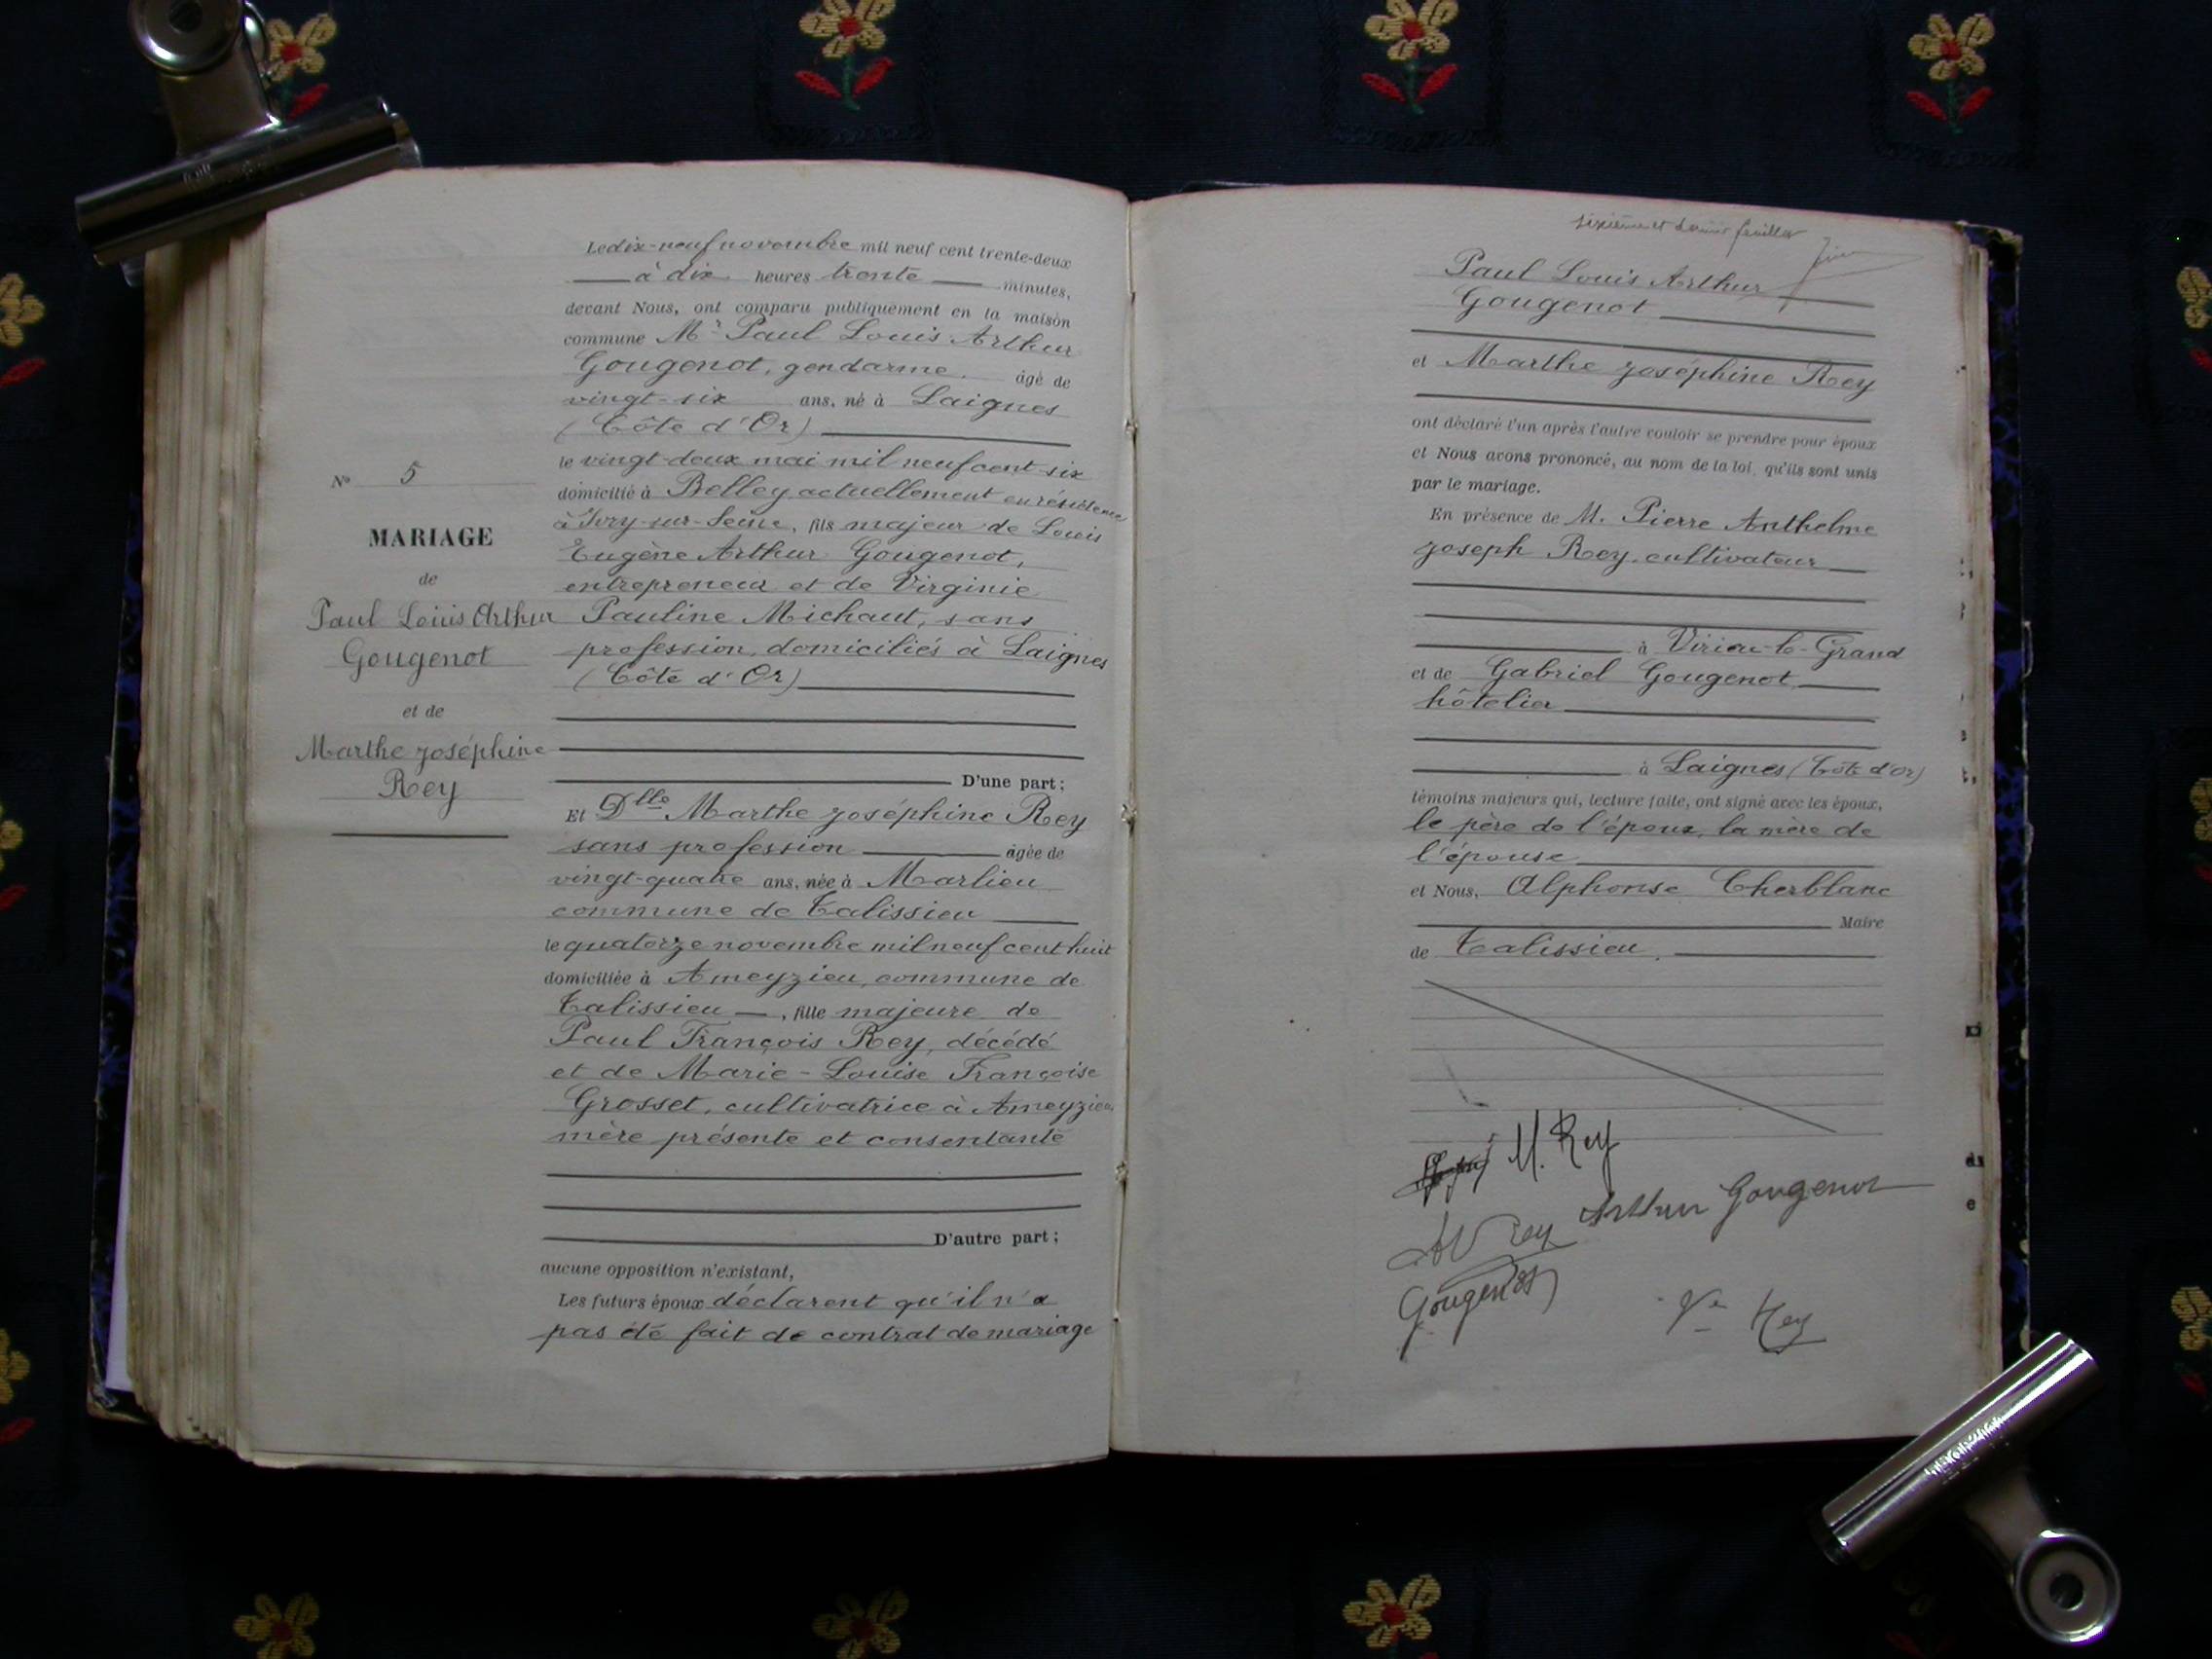 N° 5
MARIAGE
de
Paul Louis Arthur
Gougenot
et de
Marthe Joséphine
Rey
Le dix-neuf novembre mil neuf cent trente-deux
à dix heures trente minutes,
devant Nous, ont comparu publiquement en la maison
commune Mr Paul Louis Arthur
Gougenot, gendarme, âgé de
vingt-six ans, né à Laignes
(Côte d'Or)
le vingt-deux mai mil neuf cent six
domicilié à Belley actuellement en résidence
à Ivry-sur-Seine, fils majeur de Louis
Eugène Arthur Gougenot,
entrepreneur et de Virginie
Pauline Michaut, sans
profession, domiciliés à Laignes
(Côte d'Or)
D'une part;
Et Dlle Marthe Joséphine Rey
sans profession âgée de
vingt-quatre ans, née à Marlieu
commune de Talissieu
le quatorze novembre mil neuf cent huit
domiciliée à Ameyzieu, commune de
Talissieu, fille majeure de
Paul François Rey, décédé
et de Marie-Louise Françoise
Grosset, cultivatrice à Ameyzieu,
mère présente et consentante
D'autre part;
aucune opposition n'existant,
Les futurs époux déclarent qu'il n'a
pas été fait de contrat de mariage
sixième et dernier feuillet
Paul Louis Arthur
Gougenot
et Marthe Joséphine Rey
ont déclaré l'un après l'autre vouloir se prendre pour époux
et Nous avons prononcé, au nom de la loi, qu'ils sont unis
par le mariage.
En présence de M. Pierre Anthelme
Joseph Rey, cultivateur
à Virieu-le-Grand
et de Gabriel Gougenot
hôtelier
à Laignes (Côte d'Or)
témoins majeurs qui, lecture faite, ont signé avec les époux,
le père de l'époux, la mère de
l'épouse
et Nous, Alphonse Cherblanc
Maire
de Talissieu.
M. Rey
Arthur Gougenot
Rey
Gougenot
Ve Rey